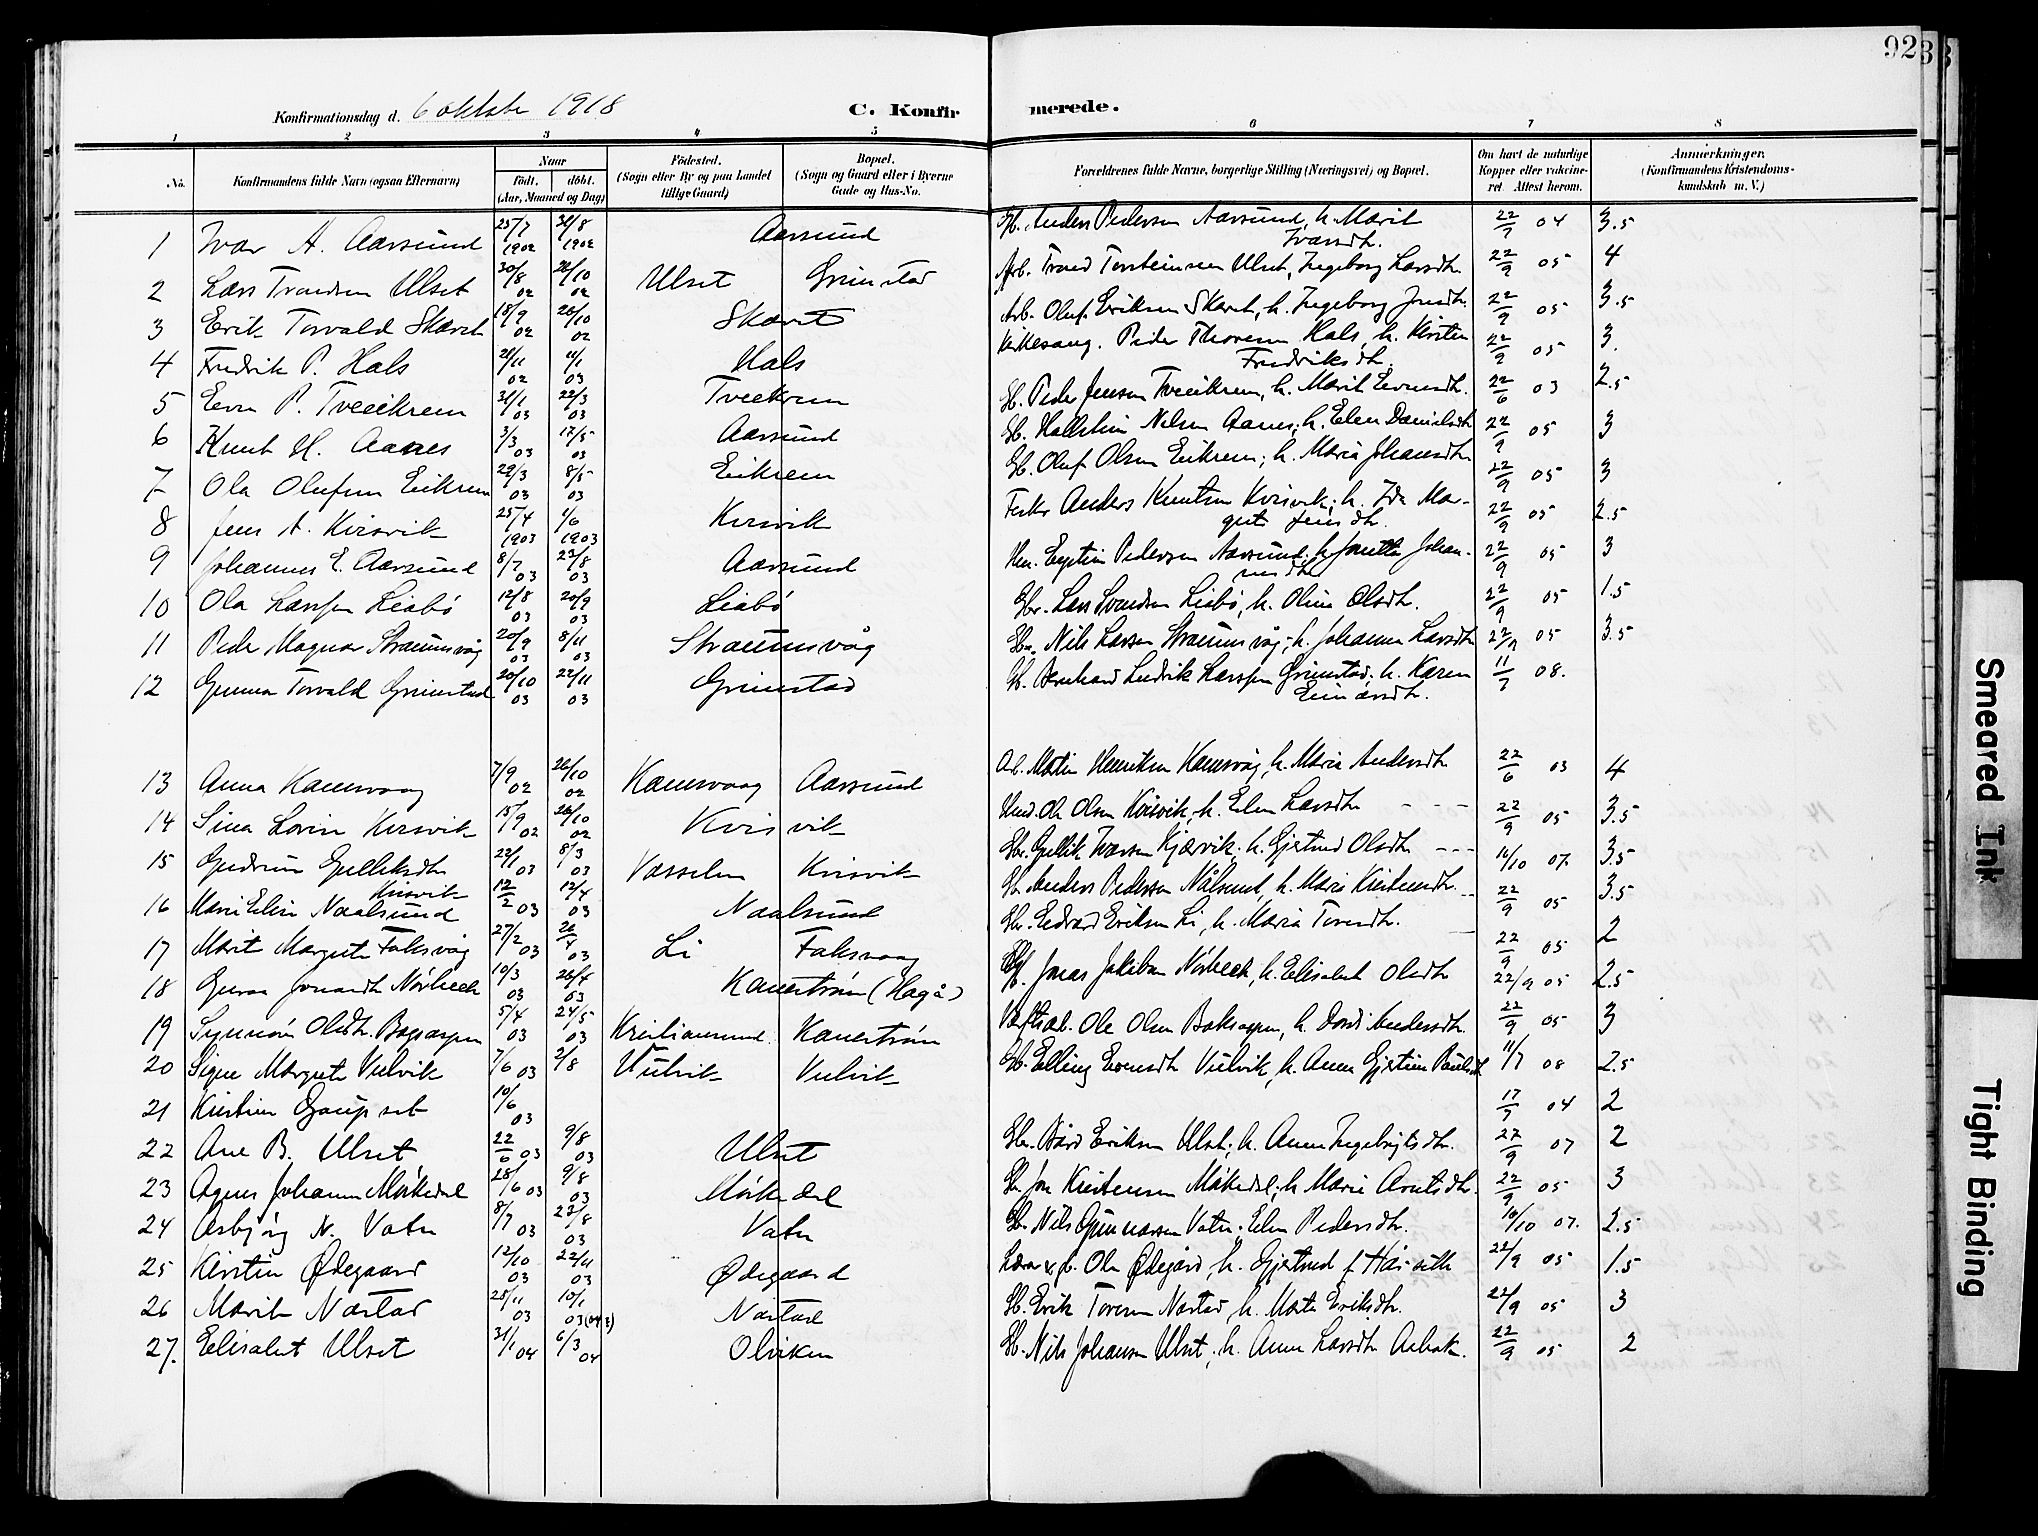 92
Konfirmationsdag d. 6 oktober 1918 C. Konfirmerede.
1 2 3 4 5 6 7 8
No. Konfirmandens fulde Navn (ogsaa Efternavn) Naar født. døbt. (Aar, Maaned og Dag) Fødested. (Sogn eller By og paa Landet tillige Gaard) Bopæl. (Sogn og Gaard eller i Byerne Gade og Hus-No. Forældrenes fulde Navne, borgerlige Stilling (Næringsvei) og Bopæl. Om havt de naturlige Kopper eller vakcineret. Attest herom. Anmærkninger. (Konfirmandens Kristendomskundskab m. V.)
1 Ivar A. Aarsund 25/7 1902 31/8 1902 Aarsund Gb. Anders Pedersen Aarsund, h. Marit Ivarsdtr. 22/7 04 3.5
2 Lars Trondsen Ulset 30/8 02 26/10 02 Ulset Grimstad Arb. Trond Torsteinsen Ulset, Ingeborg Larsdtr. 22/9 05 4
3 Erik Torvald Skaret 18/9 02 26/10 02 Skaret Arb. Oluf Eriksen Skaret, h. Ingeborg Jonsdtr. 22/9 05 3.5
4 Fredrik P. Hals 21/11 02 11/1 03 Hals Kirkesang. Peder Thoresen Hals, h. Kirsten Fredriksdtr. 22/9 05 3.
5 Even P. Tveeikrem 31/1 03 22/3 03 Tveekrem Gb. Peder Jensen Tveeikrem, h. Marit Evensdtr. 22/6 03 2.5
6 Knut H. Aanes 3/3 03 17/5 03 Aarsund Gb. Hallstein Nilsen Aanes, h. Elen Danielsdtr 22/9 05 3
7 Ola Olufsen Eikrem 29/3 03 8/5 03 Eikrem Gb. Oluf Olsen Eikrem, h. Maria Johansdtr 22/9 05 3
8 Jens A. Kvisvik 25/4 1903 1/6 1903 Kvisvik Fisker Anders Knutsen Kvisvik, h. Ida Margrete Jensdtr. 22/9 05 2.5
9 Johannes E. Aarsund 8/7 03 23/8 03 Aarsund Eystein Pedersen Aarsund, h. Johannesdtr 22/9 05 3
10 Ola Larssen Liabø 12/8 03 20/9 03 Liabø Gbr. Lars Liabø, h. Olina Olsdtr. 22/9 05 1.5
11 Peder Magnar Straumsvåg 20/9 03 8/11 03 Straumsvåg Gbr. Nils Larsen Straumsvåg, h. Johanna Larsdtr 22/9 05 3.5
12 Gunnar Torvald Grimstad 20/10 03 22/11 03 Grimstad Gb. Bernhard Ludvik Larssen Grimstad, h. Karen Einarsdtr. 11/7 08.
13 Anna Kamsvaag 7/9 02 26/10 02 Kamsvaag Aarsund Arb. Martin Henriksen Kamsvåg, h. Maria Andersdtr 22/6 03 4
14 Sina Kvisvik 15/9 02 26/10 02 Kvisvik Ole Olsen Kvisvik, h. Elen Larsdtr 22/9 05 3.5
15 Gudrun Gulliksdtr Kvisvik 22/1 03 8/3 03 Kvisvik Gbr. Gullik Ivarsen Kjørvik, h. Gjertrud Olsdtr 16/10 07. 3.5
16 Marie Elise Naalsund 12/2 03 12/4 03 Naalsund Gb. Anders Pedersen Nålsund, h. Marie Kristensdtr. 22/9 05 3.5
17 Marit Margrete Foksvåg 27/2 03 26/4 03 Li Foksvaag Gbr. Edvard Eriksen Li, h. Maria Toresdtr. 22/9 05 2
18 Guroa Jonasdtr Nørbeck 10/3 03 26/4 03 Kanestrøm (Hagå) Jonas Jakobsen Nørbeck, h. Elisabet Olsdtr 22/9 05 2.5
19 Synnøve Olsdtr. 5/4 03 24/5 03 Kristiansund Kanestrøm Ole Olsen, h. Andersdtr. 22/9 05 3
20 Signe Margrete Vulvik 7/6 03 2/8 Vulvik Vulvik Gb. Elling Evensdtr Vulvik, h. Anna Gjertine Paulsdtr 11/7 08 2.5
21 Kirstine Gaupset 10/6 03 17/7 04 2
22 Ane B. Ulset 22/6 03 9/8 03 Ulset Gbr. Bård Eriksen Ulset, h. Anne Ingebrigtsdtr. 27/9 07 2
23 Agnes Johanne Mørkedal 28/6 03 9/8 03 Mørkedal Gbr. Jon Kristensen Mørkedal, h. Marie Arntsdtr. 22/9 05 3
24 Asbjørg N. Vatn 8/7 03 23/8 03 Vatn Gb. Nils Gunnarsen Vatn, Elen Pedersdtr. 16/10 07. 2.5
25 Kirstin Ødegaard 12/10 03 22/11 03 Ødegaard Lærer & gb. Ole Ødegård, h. Gjertrud f. 22/9 05 1.5
26 Marit Nastad 25/11 03 10/1 03 Nastad Gb. Erik Toresen Nastad, h. Marta Eriksdtr. 22/9 05 3
27. Elisabet Ulset 31/1 04 6/3 04 Olviken Gb. Nils Johansen Ulset, h. Anne Larsdtr 22/9 05 2
Smeared Ink
Tight Binding